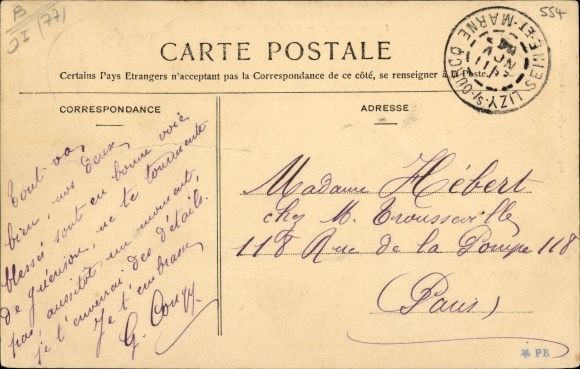 B
JI (77)
554
CARTE POSTALE
Certains Pays Etrangers n'acceptant pas la Correspondance de ce côté, se renseigner à la Poste.
LIZY-S/-OURCQ SEINE-ET-MARNE
NOV
CORRESPONDANCE
Tout va
bien, nos deux
blessés sont en bonne voie
de guérison, ne te tourmente
pas, aussitôt un moment,
je t'enverrai des détails.
Je t'embrasse
G.
ADRESSE
Madame Hébert
chez M. Trousseville
118 Rue de la Pompe 118
(Paris)
PB